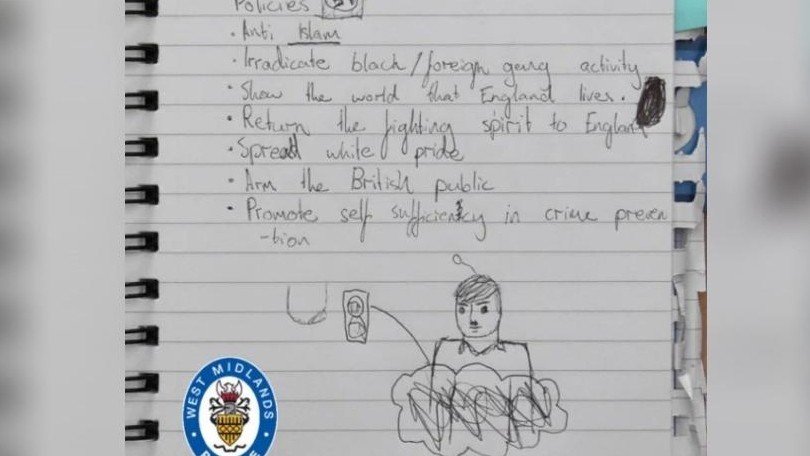 Policies
· Anti Islam
· Irradicate black/foreign gang activity
· Show the world that England lives.
· Return the fighting spirit to England
· Spread white pride
· Arm the British public
· Promote self sufficiency in crime preven
-tion
WEST MIDLANDS